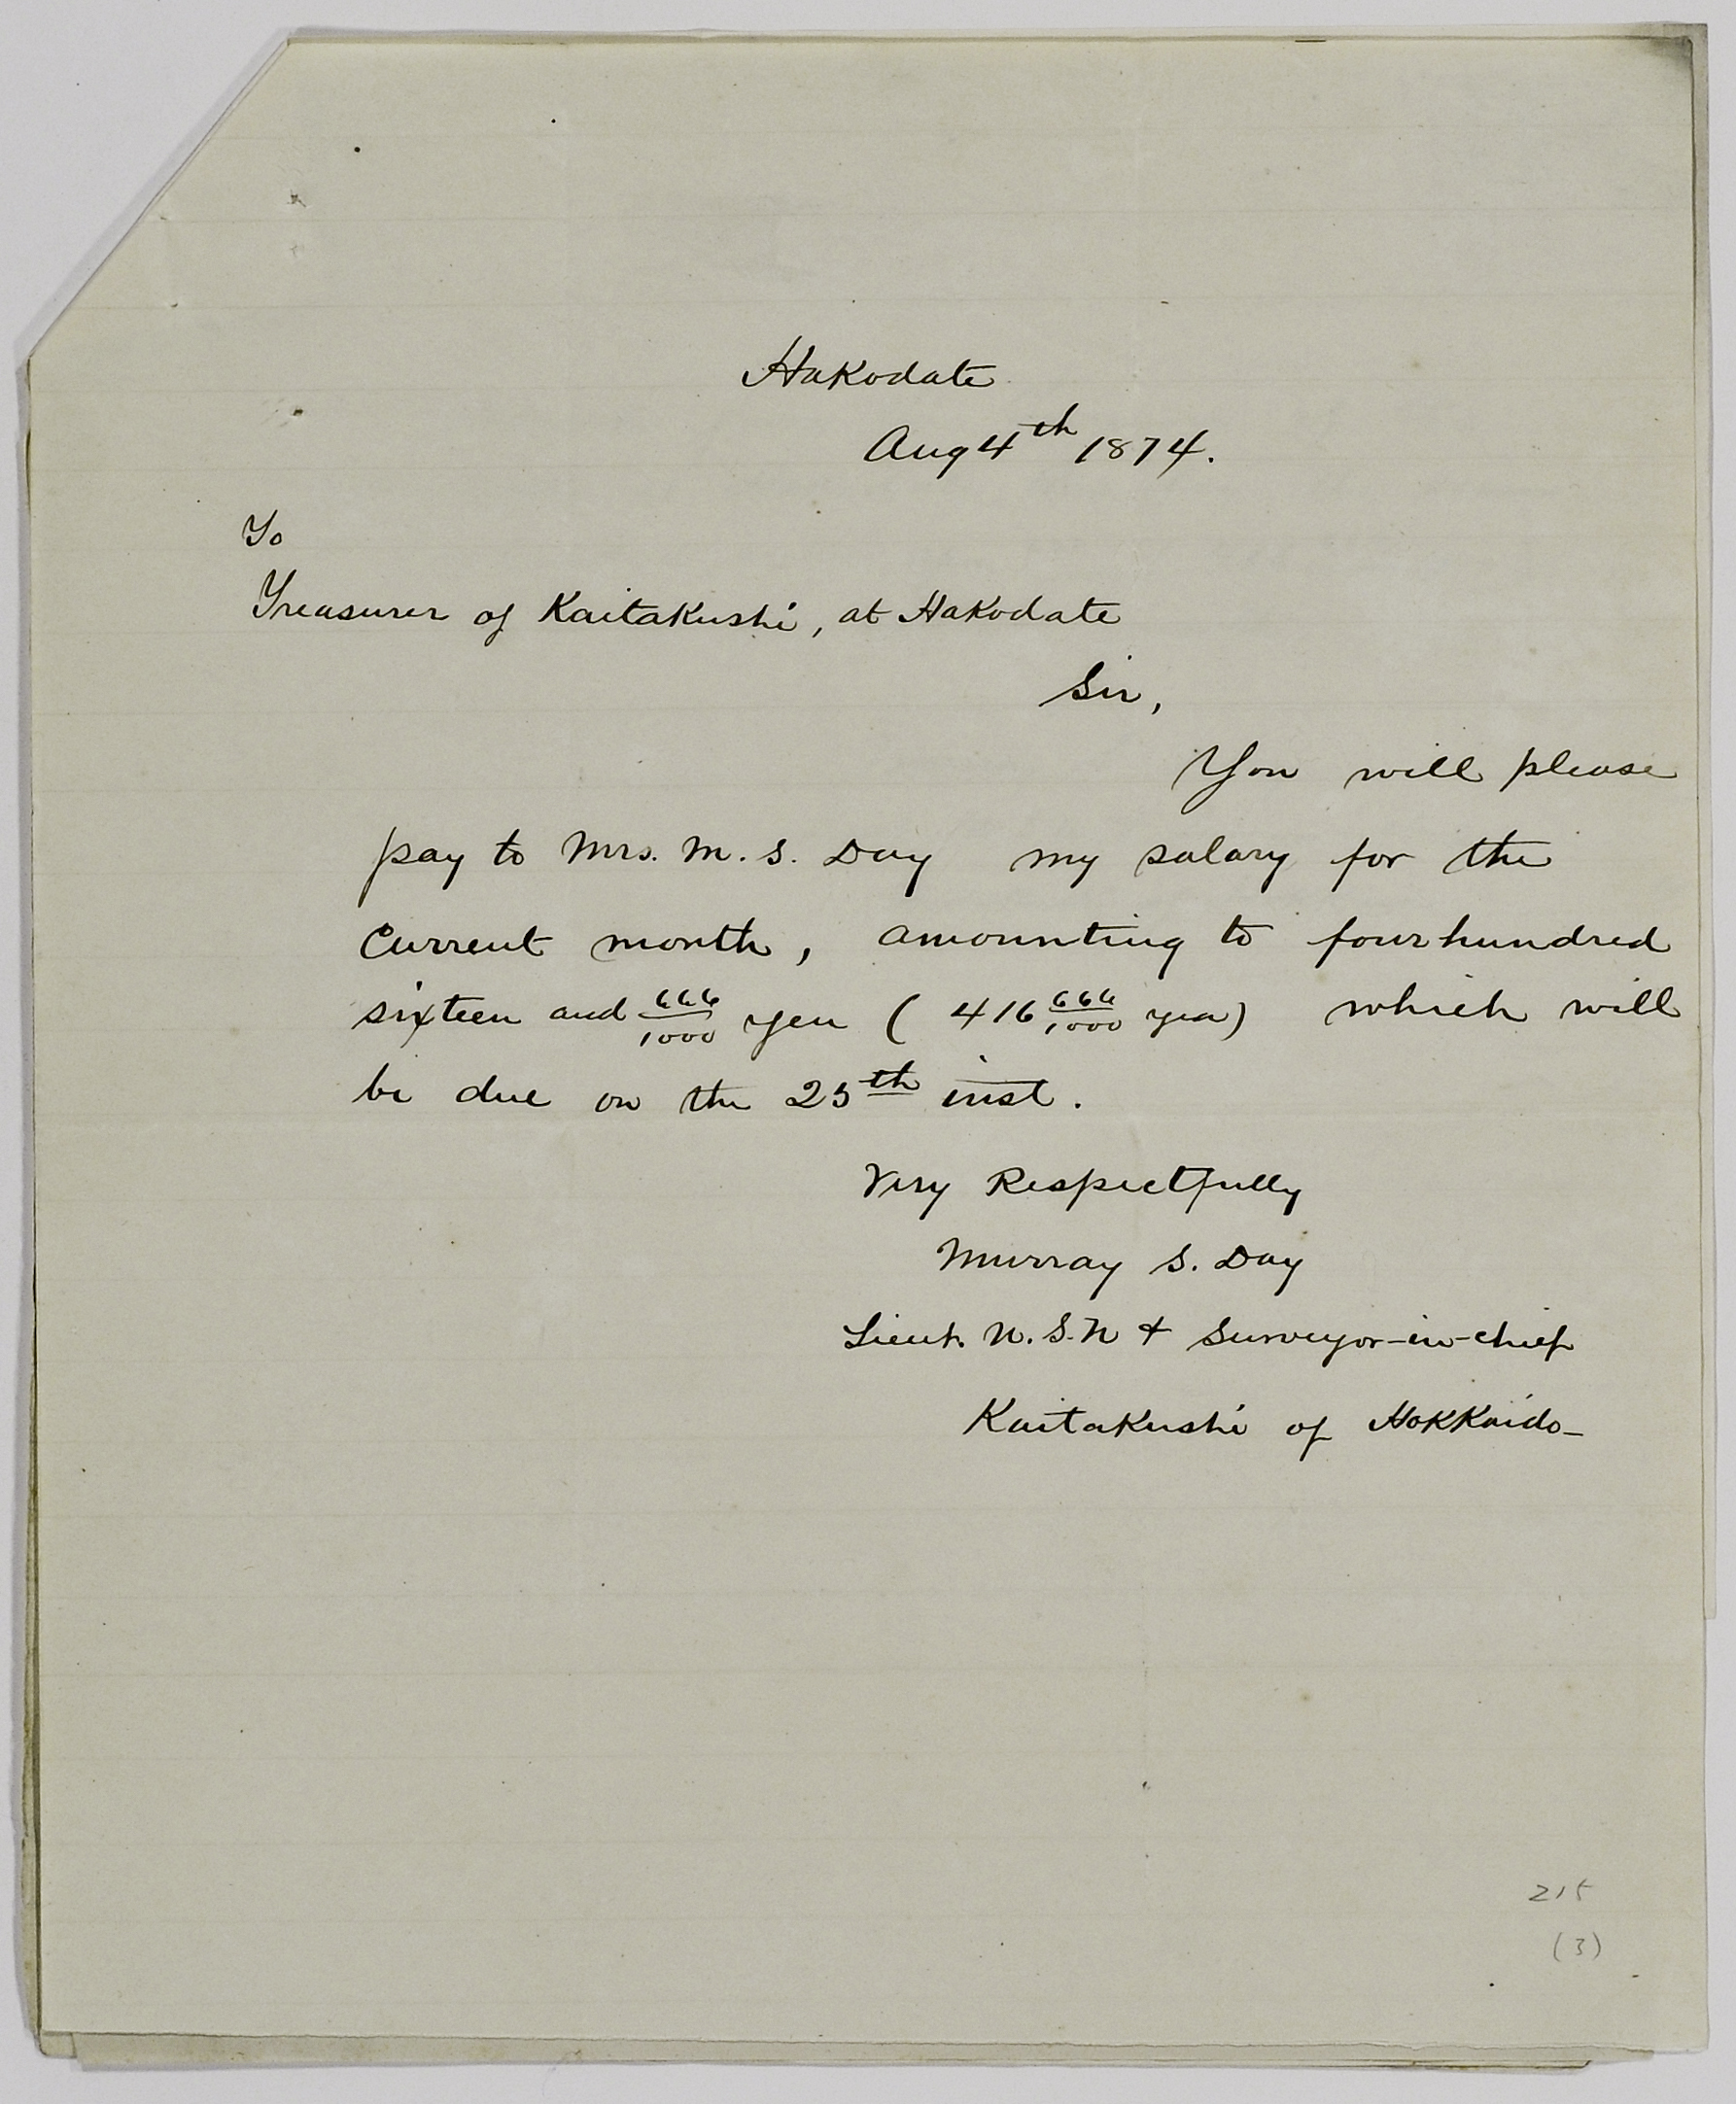 Hakodate
Aug 4th 1874.
To
Treasurer of Kaitakushi, at Hakodate
Sir,
You will please
pay to Mrs. M. S. Day my salary for the
current month, amounting to four hundred
sixteen and 666/1000 yen ( 416 666/1000 yen) which will
be due on the 25th inst.
Very Respectfully
Murray S. Day
Lieut. U.S.N & Surveyor-in-chief
Kaitakushi of Hokkaido_
215
(3)